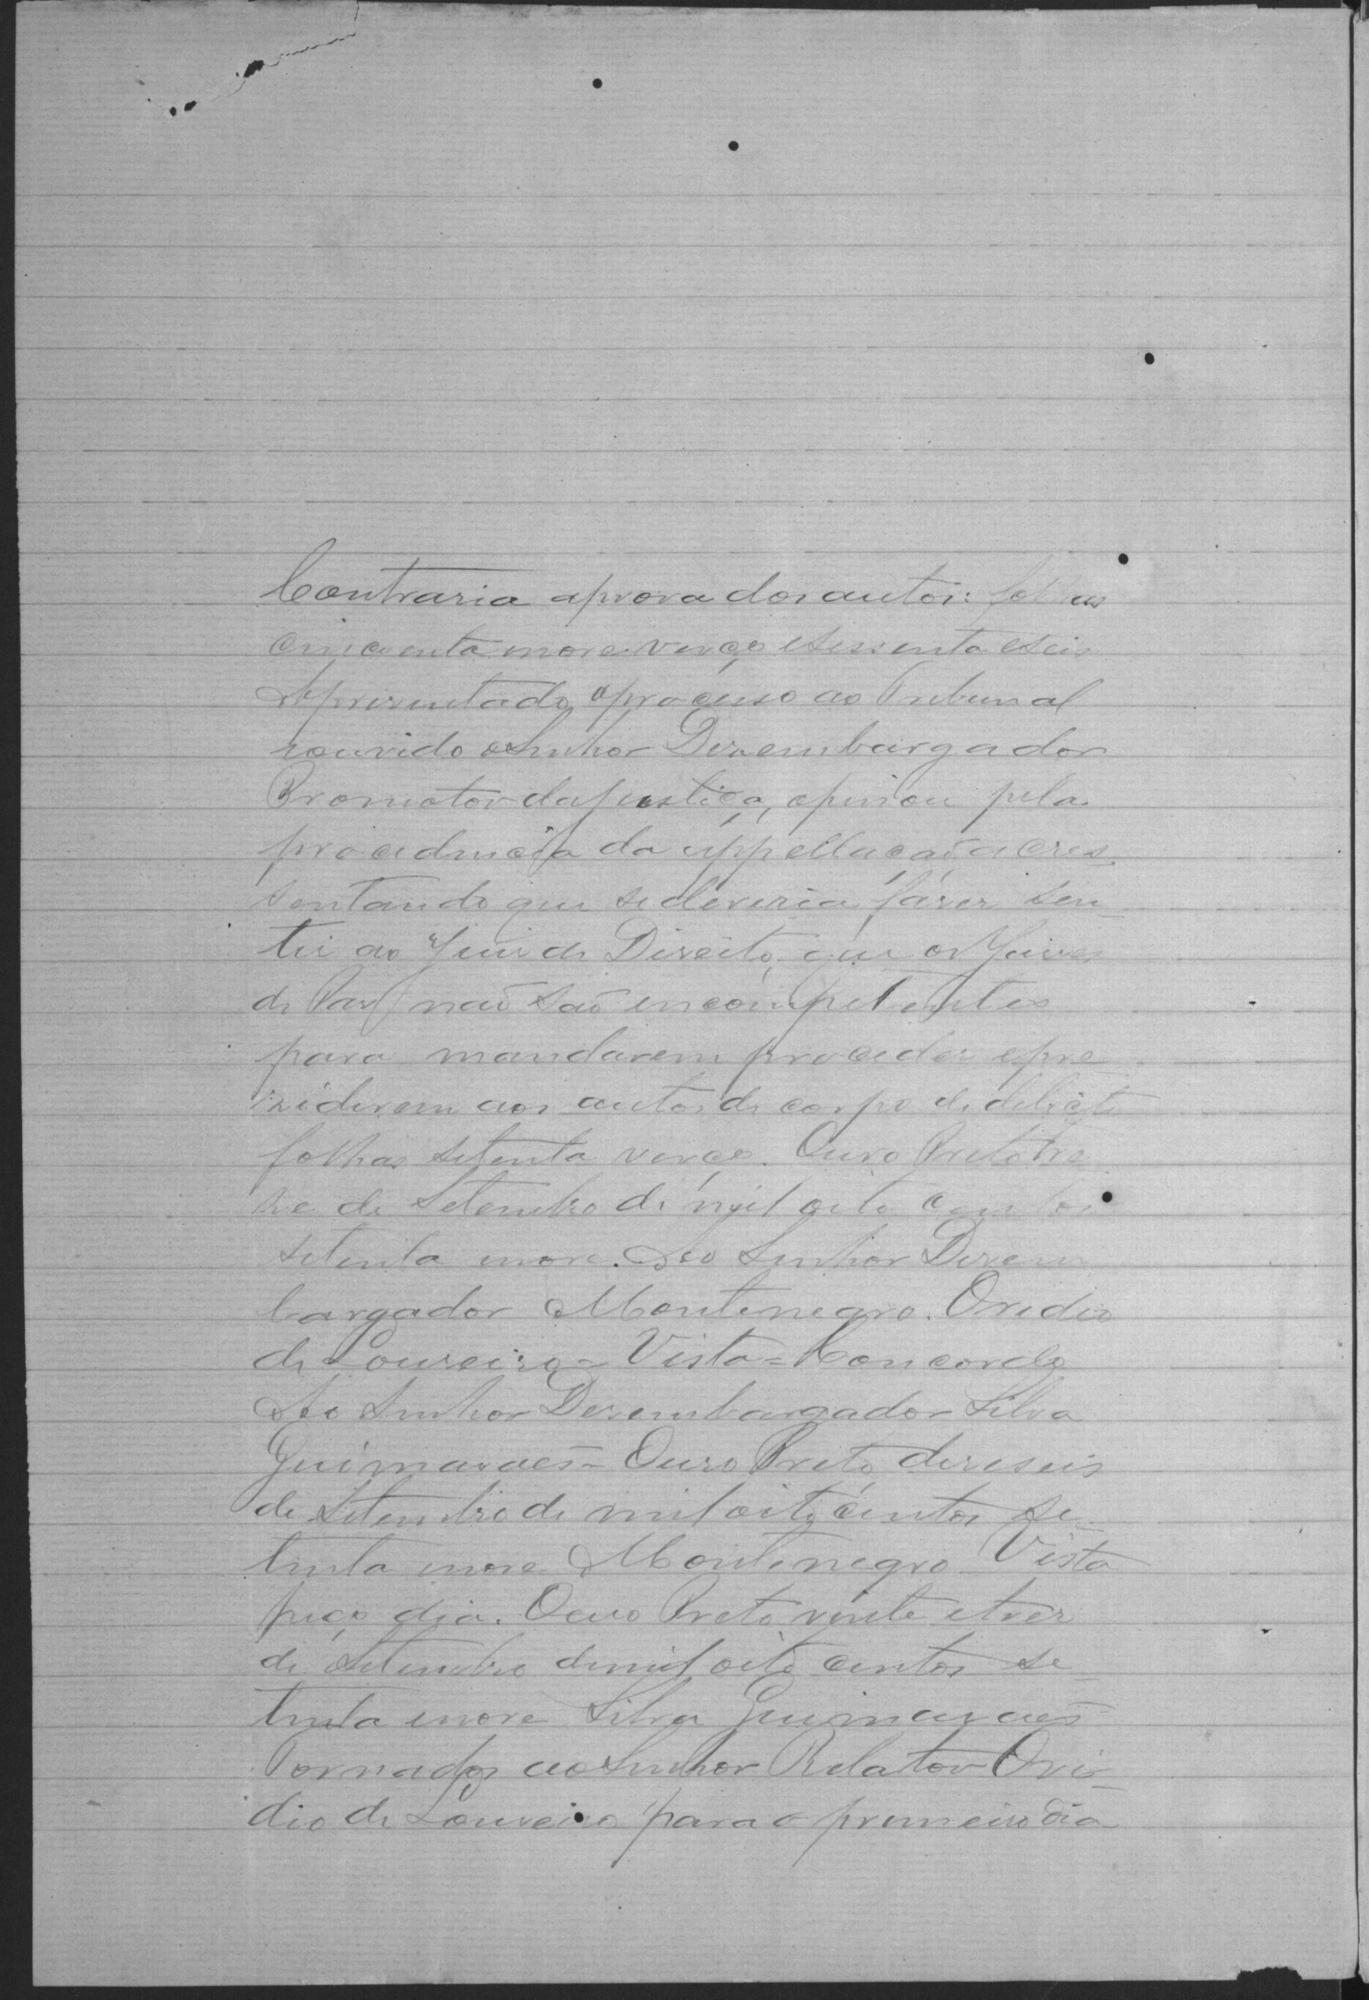 Contraria aprova dos autos: folhas
cincoenta enove verço esessenta eseis
Apresentado oprocesso ao Tribunal
eouvido oSenhor Dezembargador
Promotor dajustiça, opinou pela
procedencia da appellação acres
sentando que sedeveria fazer sen-
tir ao Juiz de Direito, que os Juizes
de Paz não são encompetentes
para mandarem proceder epre
ziderem aos autos de corpo de delicto
folhas setenta verço. Ouro Preto tre
ze de Setembro de mil oito centos
setenta enove. Ao Senhor Dezem
bargador Montenegro. Ovidio
de Loureiro = Vista = Concordo
Ao Senhor Dezembargador Silva
Guimarães = Ouro Preto dezeseis
de Setembro de mil oito centos se-
tenta enove Montenegro Vista
peço dia. Ouro Preto vinte etres
de Setembro demil oito centos se-
tenta enove Silva Guimarães
Tornados ao Senhor Relator Ovi-
dio de Loureiro para o primeiro dia